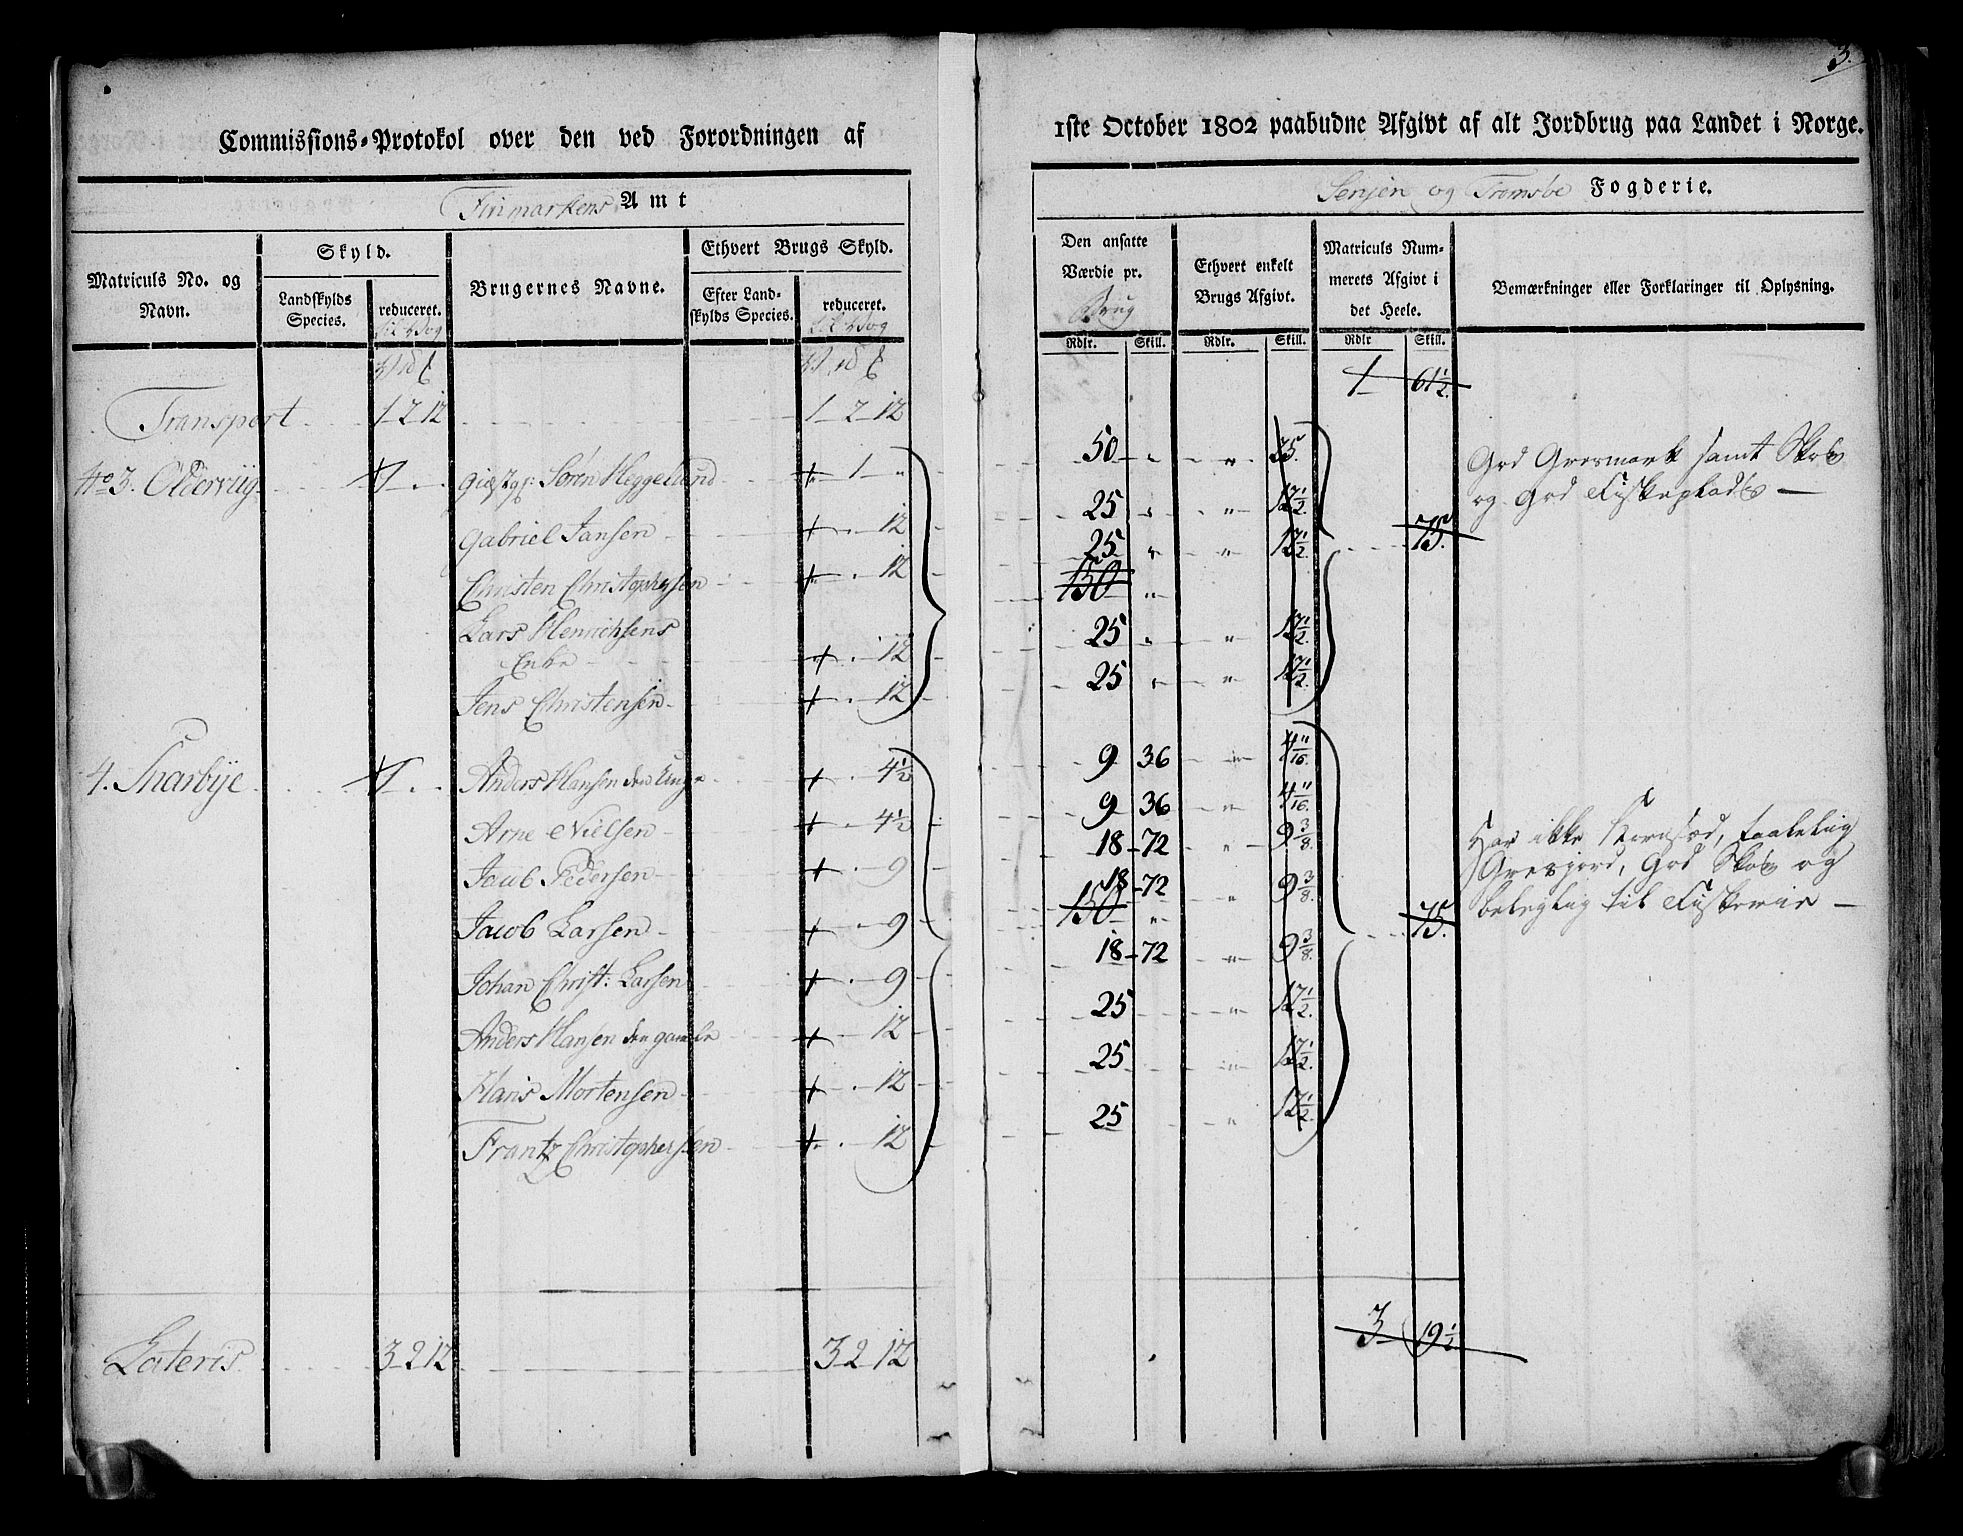 3.
Commissions-Protokol over den ved Forordningen af
1ste October 1802 paabudne Afgivt af alt Jordbrug paa Landet i Norge.
Finmarkens Amt
Senjen og Tromsöe Fogderie.
Matriculs No. og Navn.
Skyld.
Landskylds Species.
reduceret.
Brugernes Navne.
Ethvert Brugs Skyld.
Efter Landskylds Species.
reduceret.
Den ansatte Værdie pr. Brug
Ethvert enkelt Brugs Afgivt.
Matriculs Nummerets Afgivt i det Heele.
Bemærkninger eller Forklaringer til Oplysning.
Rdlr. Skill. Rdlr. Skill. Rdlr Skill.
1 61½.
Transport 1 2 12 1 2 12
No 3. Olderviig 1 . . giæstg: Sören Heggelund + 1 " 50 " " 25.
Gabriel Jansen + . 12 25 " " 12½.
Christen Christophersen + . 12 25 " " 12½.
150 " 75.
Lars Henrichsens
Enke + . 12 25 " " 12½.
Jens Christensen + . 12 25 " " 12½.
God Gresmark samt Skov
og God Fiskeplads —
4. Snarbye 1 . . Anders Hansen den Unge + . 4½ 9 36 " 4 11/16.
Arne Nielsen + . 4½ 9 36 " 4 11/16.
Jacob Pedersen + . 9 18 72 " 9 3/8.
Jacob Larsen + . 9 18 72 " 9 3/8.
150 " 75.
Johan Christ: Larsen + . 9 18 72 " 9 3/8.
Anders Hansen den gamle + . 12 25 " 12½.
Hans Mortensen + . 12 25 " 12½.
Frantz Christophersen + . 12 25 " 12½.
Har ikke Kornsæd, taalelig
Gresjord, God Skov og
beleylig til Fiskerie —
Lateris 3 2 12 3 2 12 3 19½